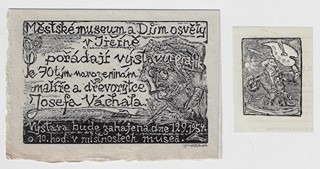 Městské museum a Dům osvěty
v Jičíně
pořádají výstavu
k 70tým narozeninám
malíře a dřevorytce
Josefa Váchala.
Výstava bude zahájena dne 12.9.1954
o 10. hod. v místnostech musea.